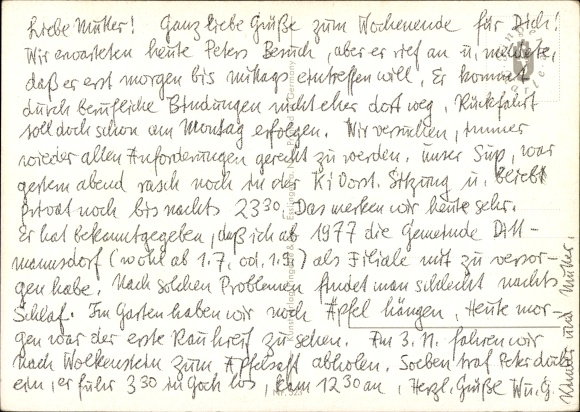 Liebe Mutter! Ganz liebe Grüße zum Wochenende für Dich!
Wir erwarteten heute Peters Besuch, aber er rief an u. meldete,
daß er erst morgen bis mittags eintreffen will. Er kommt
durch berufliche Bindungen nicht eher dort weg. Rückfahrt
soll doch schon am Montag erfolgen. Wir versuchen, immer
wieder allen Anforderungen gerecht zu werden. Unser Sup. war
gestern abend rasch noch in der Ki Vorst. Sitzung u. bleibt
privat noch bis nachts 23 30. Das merken wir heute sehr.
Er hat bekanntgegeben, daß ich ab 1977 die Gemeinde Ditt-
mannsdorf (wohl ab 1.7. od. 1.9.) als Filiale mit zu versor-
gen habe. Nach solchen Problemen findet man schlecht nachts
Schlaf. Im Garten haben wir noch Äpfel hängen, Heute mor-
gen war der erste Rauhreif zu sehen. Am 3. 11. fahren wir
nach Wolkenstein zum Apfelsaft abholen. Soeben traf Peter doch
ein, er fuhr 3 30 in Goch los, kam 12 30 an, Herzl. Grüße W. u. G.